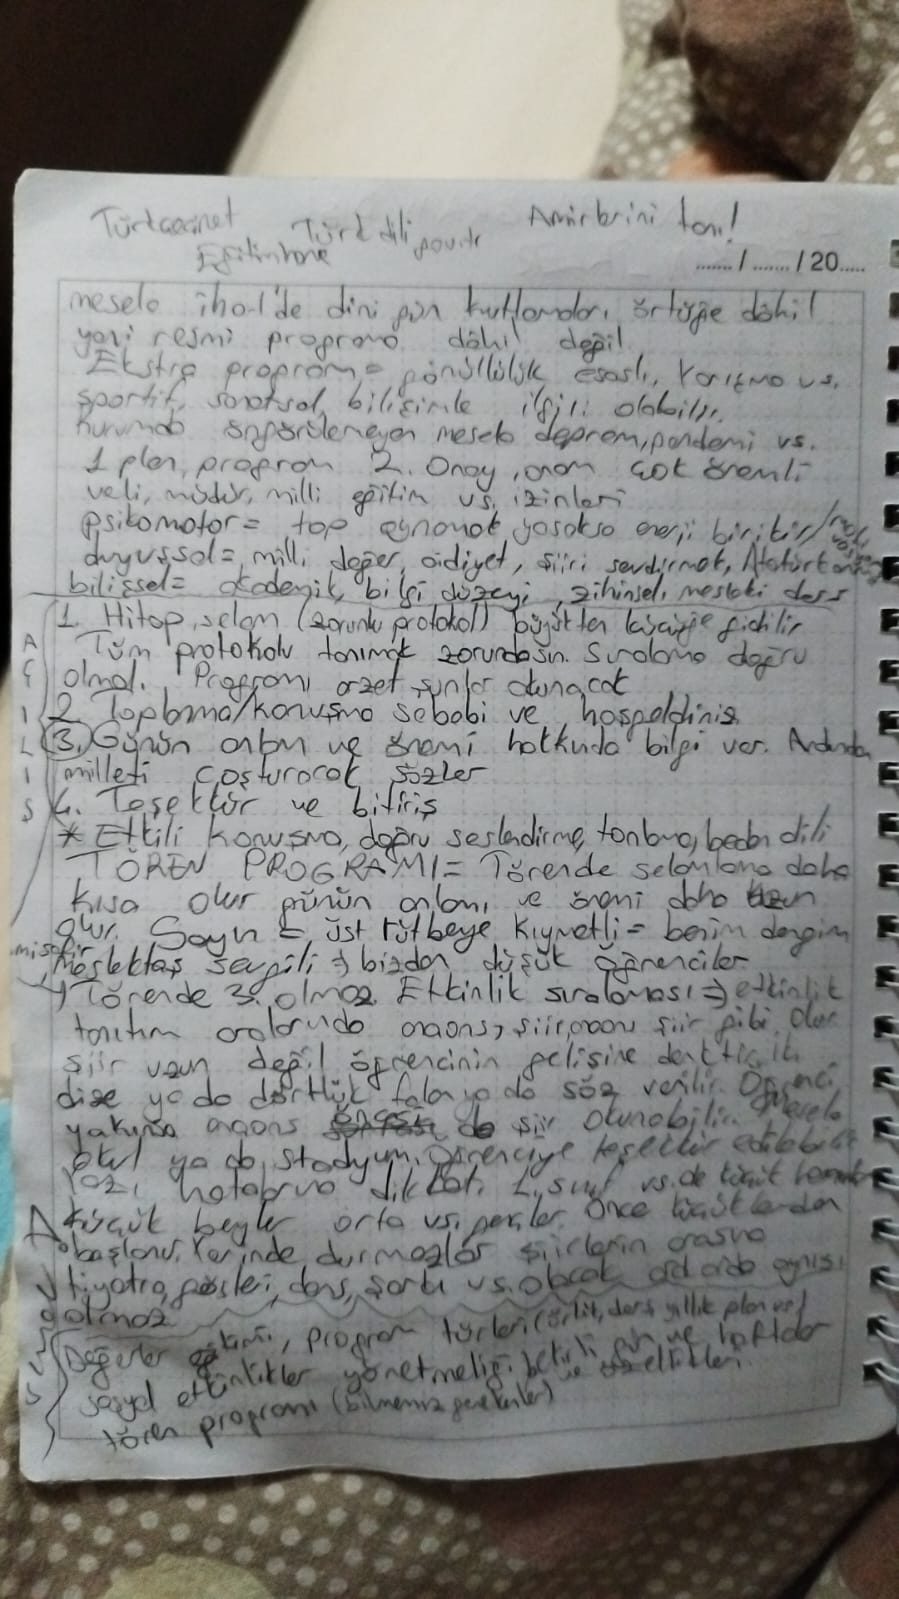 Türkçenet Türk dili Amirlerini tanı!
Eğitimhane
...... / ...... / 20.....
mesela ihol'de dini gün kutlamaları örtüğe dahil
yani resmi programa dahil değil
Ekstra program = gönüllülük esaslı, Yarışma vs.
sportif, sanatsal, bilişimle ilgili olabilir.
öngörülemeyen mesela deprem, pandemi vs.
1 plan, program 2. Onay, onam çok önemli
veli, müdür, milli eğitim vs. izinleri
Psikomotor = top oynamak yasaksa enerji birikir
duyuşsal = milli değer, aidiyet, şiiri sevdirmek, Atatürk
bilişsel = akademik, bilgi düzeyi, zihinsel, mesleki ders
AÇILIŞ
1. Hitap, selam (zorunlu protokol) büyükten küçüğe gidilir
Tüm protokolü tanımak zorundasın. Sıralama doğru
olmalı. Programı özet şunlar okunacak
2. Toplanma/konuşma sebebi ve hoşgeldiniz
3. Günün anlam ve önemi hakkında bilgi ver. Ardından
milleti coşturacak sözler
4. Teşekkür ve bitiriş
* Etkili konuşma, doğru seslendirme, tonlama, beden dili
TÖREN PROGRAMI = Törende selamlama daha
kısa olur günün anlamı ve önemi daha uzun
olur. Sayın = üst rütbeye kıymetli = benim dengim
misafir
Meslektaş sevgili => bizden düşük öğrenciler
Törende 3. olmaz. Etkinlik sıralaması => etkinlik
tanıtım aralarında anons, şiir, anons şiir gibi olur
şiir uzun değil öğrencinin gelişine denk
dize ya da dörtlük falan ya da söz verilir. Öğrenci
yakınsa anons da şiir okunabilir. Mesela
okul ya da stadyum. Öğrenciye teşekkür edilebilir
Yazı, hitabına dikkat. 1. sınıf vs. de küçük
küçük beyler orta vs. gençler. Önce küçüklerden
başlanır. Yerinde durmazlar şiirlerin arasına
tiyatro, gösteri, dans, şarkı vs. olacak ard arda aynısı
olmaz
Değerler eğitimi, program türleri (örtük, ders yıllık plan vs)
sosyal etkinlikler yönetmeliği, belirli gün ve haftalar
ve özellikleri.
tören programı (bilmemiz gerekenler)